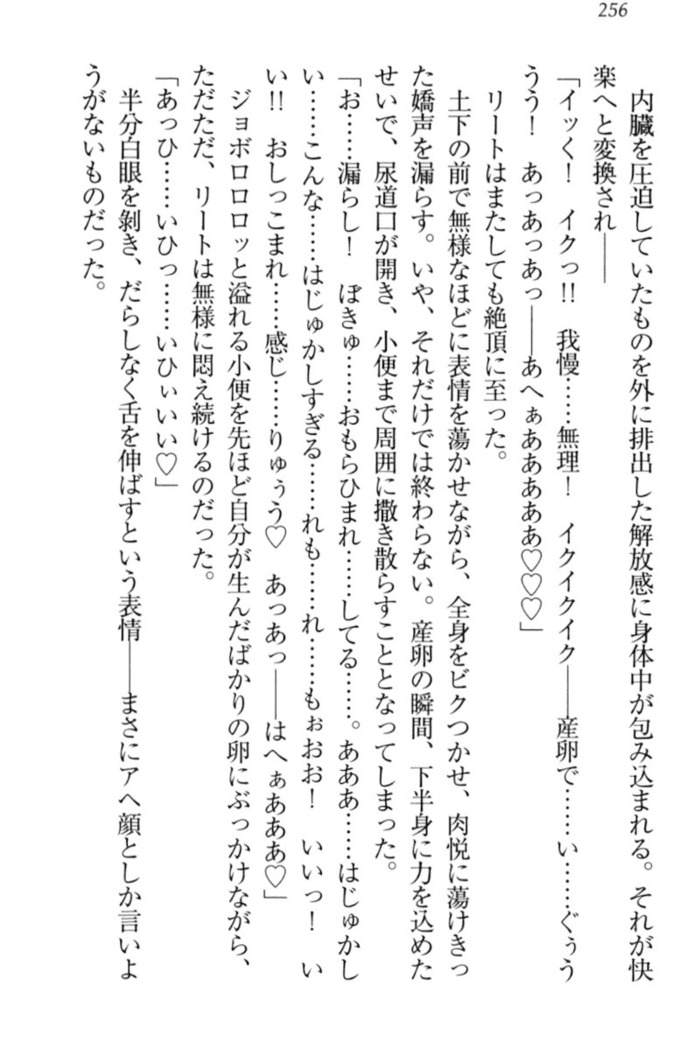 256
内臓を圧迫していたものを外に排出した解放感に身体中が包み込まれる。それが快
楽へと変換され――
「イッく！　イクっ!!　我慢……無理！　イクイクイク――産卵で……い……ぐぅう
うう！　あっあっあっ――あへぁああああああ♡♡♡」
リートはまたしても絶頂に至った。
土下の前で無様なほどに表情を蕩かせながら、全身をビクつかせ、肉悦に蕩けきっ
た嬌声を漏らす。いや、それだけでは終わらない。産卵の瞬間、下半身に力を込めた
せいで、尿道口が開き、小便まで周囲に撒き散らすこととなってしまった。
「お……漏らし！　ぼきゅ……おもらひまれ……してる……。あああ……はじゅかし
い……こんな……はじゅかしすぎる……れも……れ……もぉおお！　いいっ！　い
い!!　おしっこまれ……感じ……りゅぅう♡　あっあっ――はへぁあああ♡」
ジョボロロロッと溢れる小便を先ほど自分が生んだばかりの卵にぶっかけながら、
ただただ、リートは無様に悶え続けるのだった。
「あっひ……いひっ……いひぃいい♡」
半分白眼を剝き、だらしなく舌を伸ばすという表情――まさにアヘ顔としか言いよ
うがないものだった。